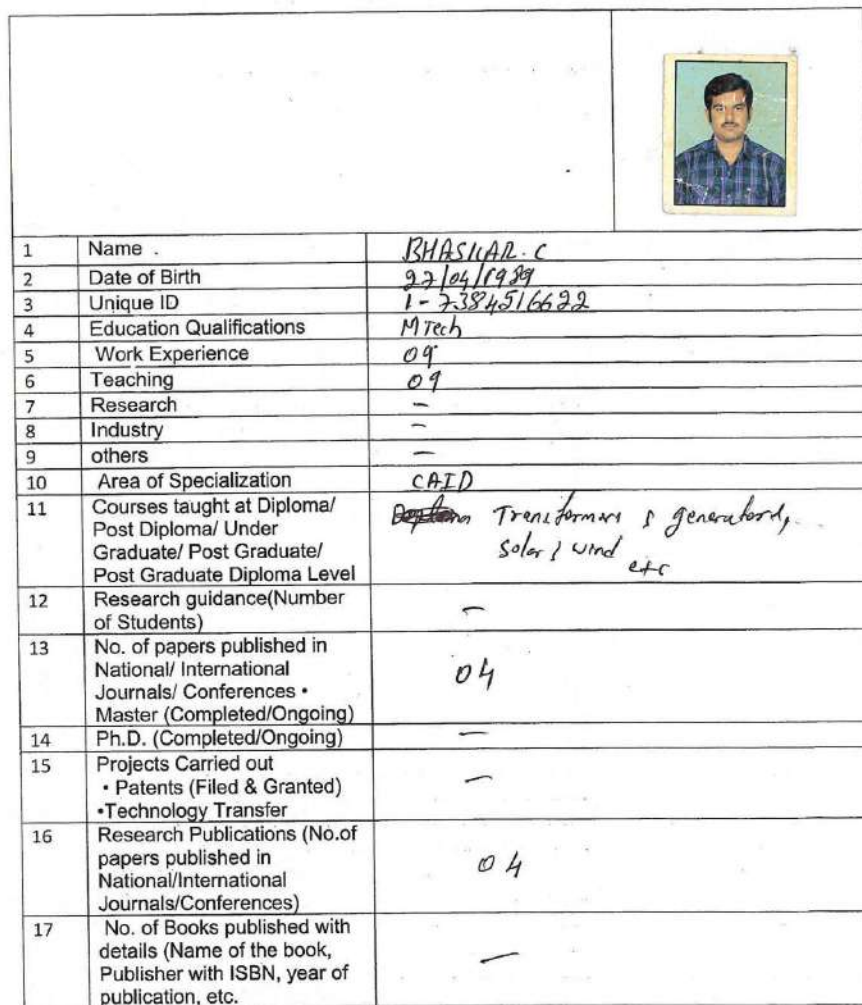 1 Name . BHASKAR. C
2 Date of Birth 27/04/1989
3 Unique ID 1-7384516622
4 Education Qualifications MTech
5 Work Experience 09
6 Teaching 09
7 Research -
8 Industry -
9 others -
10 Area of Specialization CAID
11 Courses taught at Diploma/ Transformers & generators,
Post Diploma/ Under solar & wind
Graduate/ Post Graduate/ etc
Post Graduate Diploma Level
12 Research guidance(Number
of Students) -
13 No. of papers published in
National/ International 04
Journals/ Conferences •
Master (Completed/Ongoing)
14 Ph.D. (Completed/Ongoing) -
15 Projects Carried out
• Patents (Filed & Granted) -
•Technology Transfer
16 Research Publications (No.of
papers published in 04
National/International
Journals/Conferences)
17 No. of Books published with
details (Name of the book, -
Publisher with ISBN, year of
publication, etc.